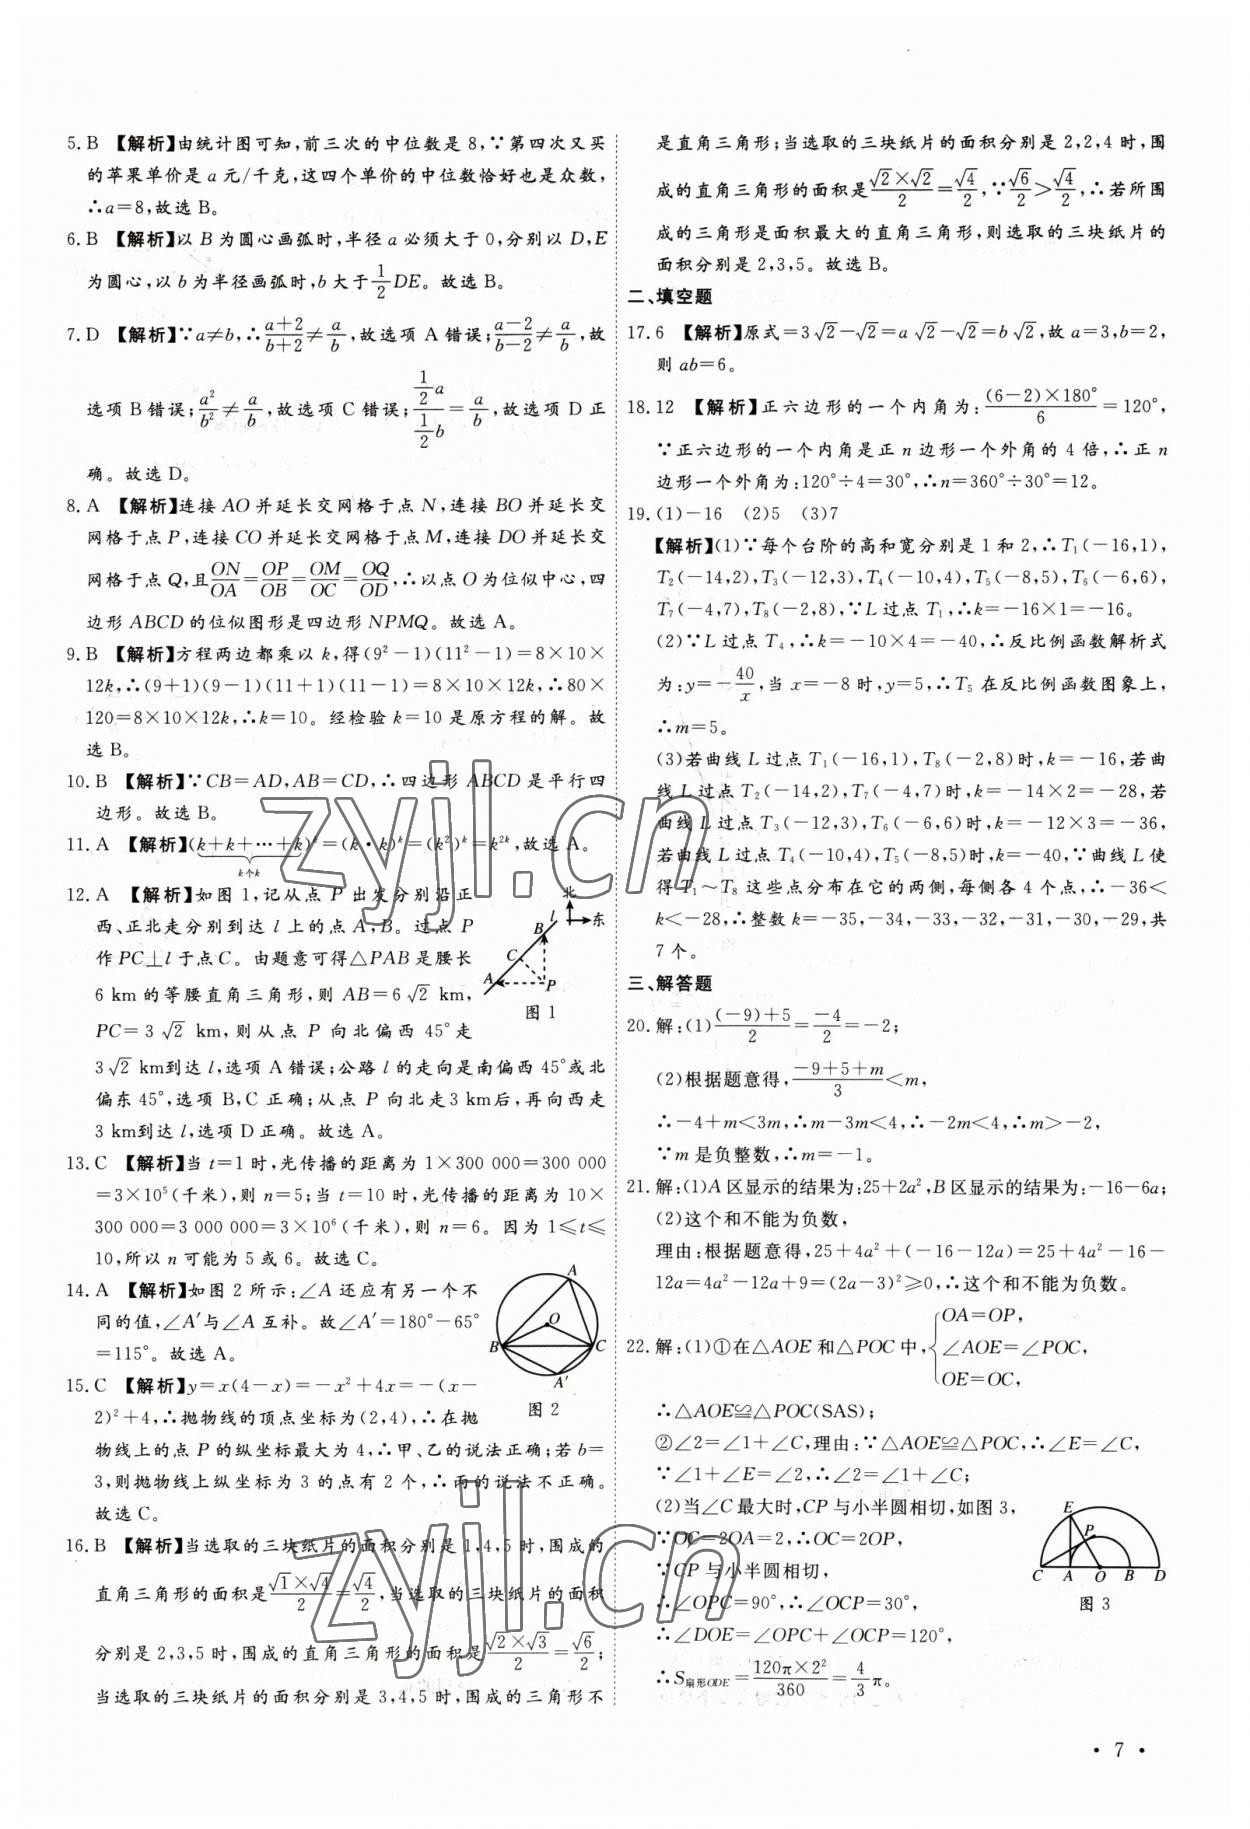 5. B 【解析】由统计图可知,前三次的中位数是 8,∵第四次又买
的苹果单价是 a 元/千克,这四个单价的中位数恰好也是众数,
∴a=8,故选 B。
6. B 【解析】以 B 为圆心画弧时,半径 a 必须大于 0,分别以 D,E
为圆心,以 b 为半径画弧时,b 大于 1/2 DE。故选 B。
7. D 【解析】∵a≠b,∴(a+2)/(b+2)≠a/b,故选项 A 错误;(a−2)/(b−2)≠a/b,故
选项 B 错误;a²/b²≠a/b,故选项 C 错误;(1/2 a)/(1/2 b)=a/b,故选项 D 正
确。故选 D。
8. A 【解析】连接 AO 并延长交网格于点 N,连接 BO 并延长交
网格于点 P,连接 CO 并延长交网格于点 M,连接 DO 并延长交
网格于点 Q,且 ON/OA=OP/OB=OM/OC=OQ/OD,∴以点 O 为位似中心,四
边形 ABCD 的位似图形是四边形 NPMQ。故选 A。
9. B 【解析】方程两边都乘以 k,得(9²−1)(11²−1)=8×10×
12k,∴(9+1)(9−1)(11+1)(11−1)=8×10×12k,∴80×
120=8×10×12k,∴k=10。经检验 k=10 是原方程的解。故
选 B。
10. B 【解析】∵CB=AD,AB=CD,∴四边形 ABCD 是平行四
边形。故选 B。
11. A 【解析】(k+k+…+k)ᵏ=(k·k)ᵏ=(k²)ᵏ=k²ᵏ,故选 A。
k个k
12. A 【解析】如图 1,记从点 P 出发分别沿正
西、正北走分别到达 l 上的点 A,B。过点 P
作 PC⊥l 于点 C。由题意可得△PAB 是腰长
6 km 的等腰直角三角形,则 AB=6√2 km,
PC=3√2 km,则从点 P 向北偏西 45°走
3√2 km到达 l,选项 A 错误;公路 l 的走向是南偏西 45°或北
偏东 45°,选项 B,C 正确;从点 P 向北走3 km后,再向西走
3 km到达 l,选项 D 正确。故选 A。
北
东
l
B
C
A
P
图 1
13. C 【解析】当 t=1 时,光传播的距离为 1×300 000=300 000
=3×10⁵(千米),则 n=5;当 t=10 时,光传播的距离为 10×
300 000=3 000 000=3×10⁶(千米),则 n=6。因为 1≤t≤
10,所以 n 可能为 5 或 6。故选 C。
14. A 【解析】如图 2 所示:∠A 还应有另一个不
同的值,∠A′与∠A 互补。故∠A′=180°−65°
=115°。故选 A。
A
O
B
C
A′
图 2
15. C 【解析】y=x(4−x)=−x²+4x=−(x−
2)²+4,∴抛物线的顶点坐标为(2,4),∴在抛
物线上的点 P 的纵坐标最大为 4,∴甲、乙的说法正确;若 b=
3,则抛物线上纵坐标为 3 的点有 2 个,∴丙的说法不正确。
故选 C。
16. B 【解析】当选取的三块纸片的面积分别是 1,4,5 时,围成的
直角三角形的面积是 (√1×√4)/2=√4/2,当选取的三块纸片的面积
分别是 2,3,5 时,围成的直角三角形的面积是 (√2×√3)/2=√6/2;
当选取的三块纸片的面积分别是 3,4,5 时,围成的三角形不
是直角三角形;当选取的三块纸片的面积分别是 2,2,4 时,围
成的直角三角形的面积是 (√2×√2)/2=√4/2,∵√6/2>√4/2,∴若所围
成的三角形是面积最大的直角三角形,则选取的三块纸片的
面积分别是 2,3,5。故选 B。
二、填空题
17. 6 【解析】原式=3√2−√2=a√2−√2=b√2,故 a=3,b=2,
则 ab=6。
18. 12 【解析】正六边形的一个内角为:(6−2)×180°/6=120°,
∵正六边形的一个内角是正 n 边形一个外角的 4 倍,∴正 n
边形一个外角为:120°÷4=30°,∴n=360°÷30°=12。
19. (1)−16 (2)5 (3)7
【解析】(1)∵每个台阶的高和宽分别是 1 和 2,∴T₁(−16,1),
T₂(−14,2),T₃(−12,3),T₄(−10,4),T₅(−8,5),T₆(−6,6),
T₇(−4,7),T₈(−2,8),∵L 过点 T₁,∴k=−16×1=−16。
(2)∵L 过点 T₄,∴k=−10×4=−40,∴反比例函数解析式
为:y=−40/x,当 x=−8 时,y=5,∴T₅ 在反比例函数图象上,
∴m=5。
(3)若曲线 L 过点 T₁(−16,1),T₈(−2,8)时,k=−16,若曲
线 L 过点 T₂(−14,2),T₇(−4,7)时,k=−14×2=−28,若
曲线 L 过点 T₃(−12,3),T₆(−6,6)时,k=−12×3=−36,
若曲线 L 过点 T₄(−10,4),T₅(−8,5)时,k=−40,∵曲线 L 使
得 T₁~T₈ 这些点分布在它的两侧,每侧各 4 个点,∴−36<
k<−28,∴整数 k=−35,−34,−33,−32,−31,−30,−29,共
7 个。
三、解答题
20. 解:(1)((−9)+5)/2=−4/2=−2;
(2)根据题意得,(−9+5+m)/3<m,
∴−4+m<3m,∴m−3m<4,∴−2m<4,∴m>−2,
∵m 是负整数,∴m=−1。
21. 解:(1)A 区显示的结果为:25+2a²,B 区显示的结果为:−16−6a;
(2)这个和不能为负数,
理由:根据题意得,25+4a²+(−16−12a)=25+4a²−16−
12a=4a²−12a+9=(2a−3)²≥0,∴这个和不能为负数。
22. 解:(1)①在△AOE 和△POC 中,{OA=OP,
∠AOE=∠POC,
OE=OC,
∴△AOE≌△POC(SAS);
②∠2=∠1+∠C,理由:∵△AOE≌△POC,∴∠E=∠C,
∵∠1+∠E=∠2,∴∠2=∠1+∠C;
(2)当∠C 最大时,CP 与小半圆相切,如图 3,
∵OC=2OA=2,∴OC=2OP,
∵CP 与小半圆相切,
∴∠OPC=90°,∴∠OCP=30°,
∴∠DOE=∠OPC+∠OCP=120°,
∴S扇形ODE=120π×2²/360=4/3 π。
E
P
C A O B D
图 3
zyjl.cn
zyjl.cn
• 7 •